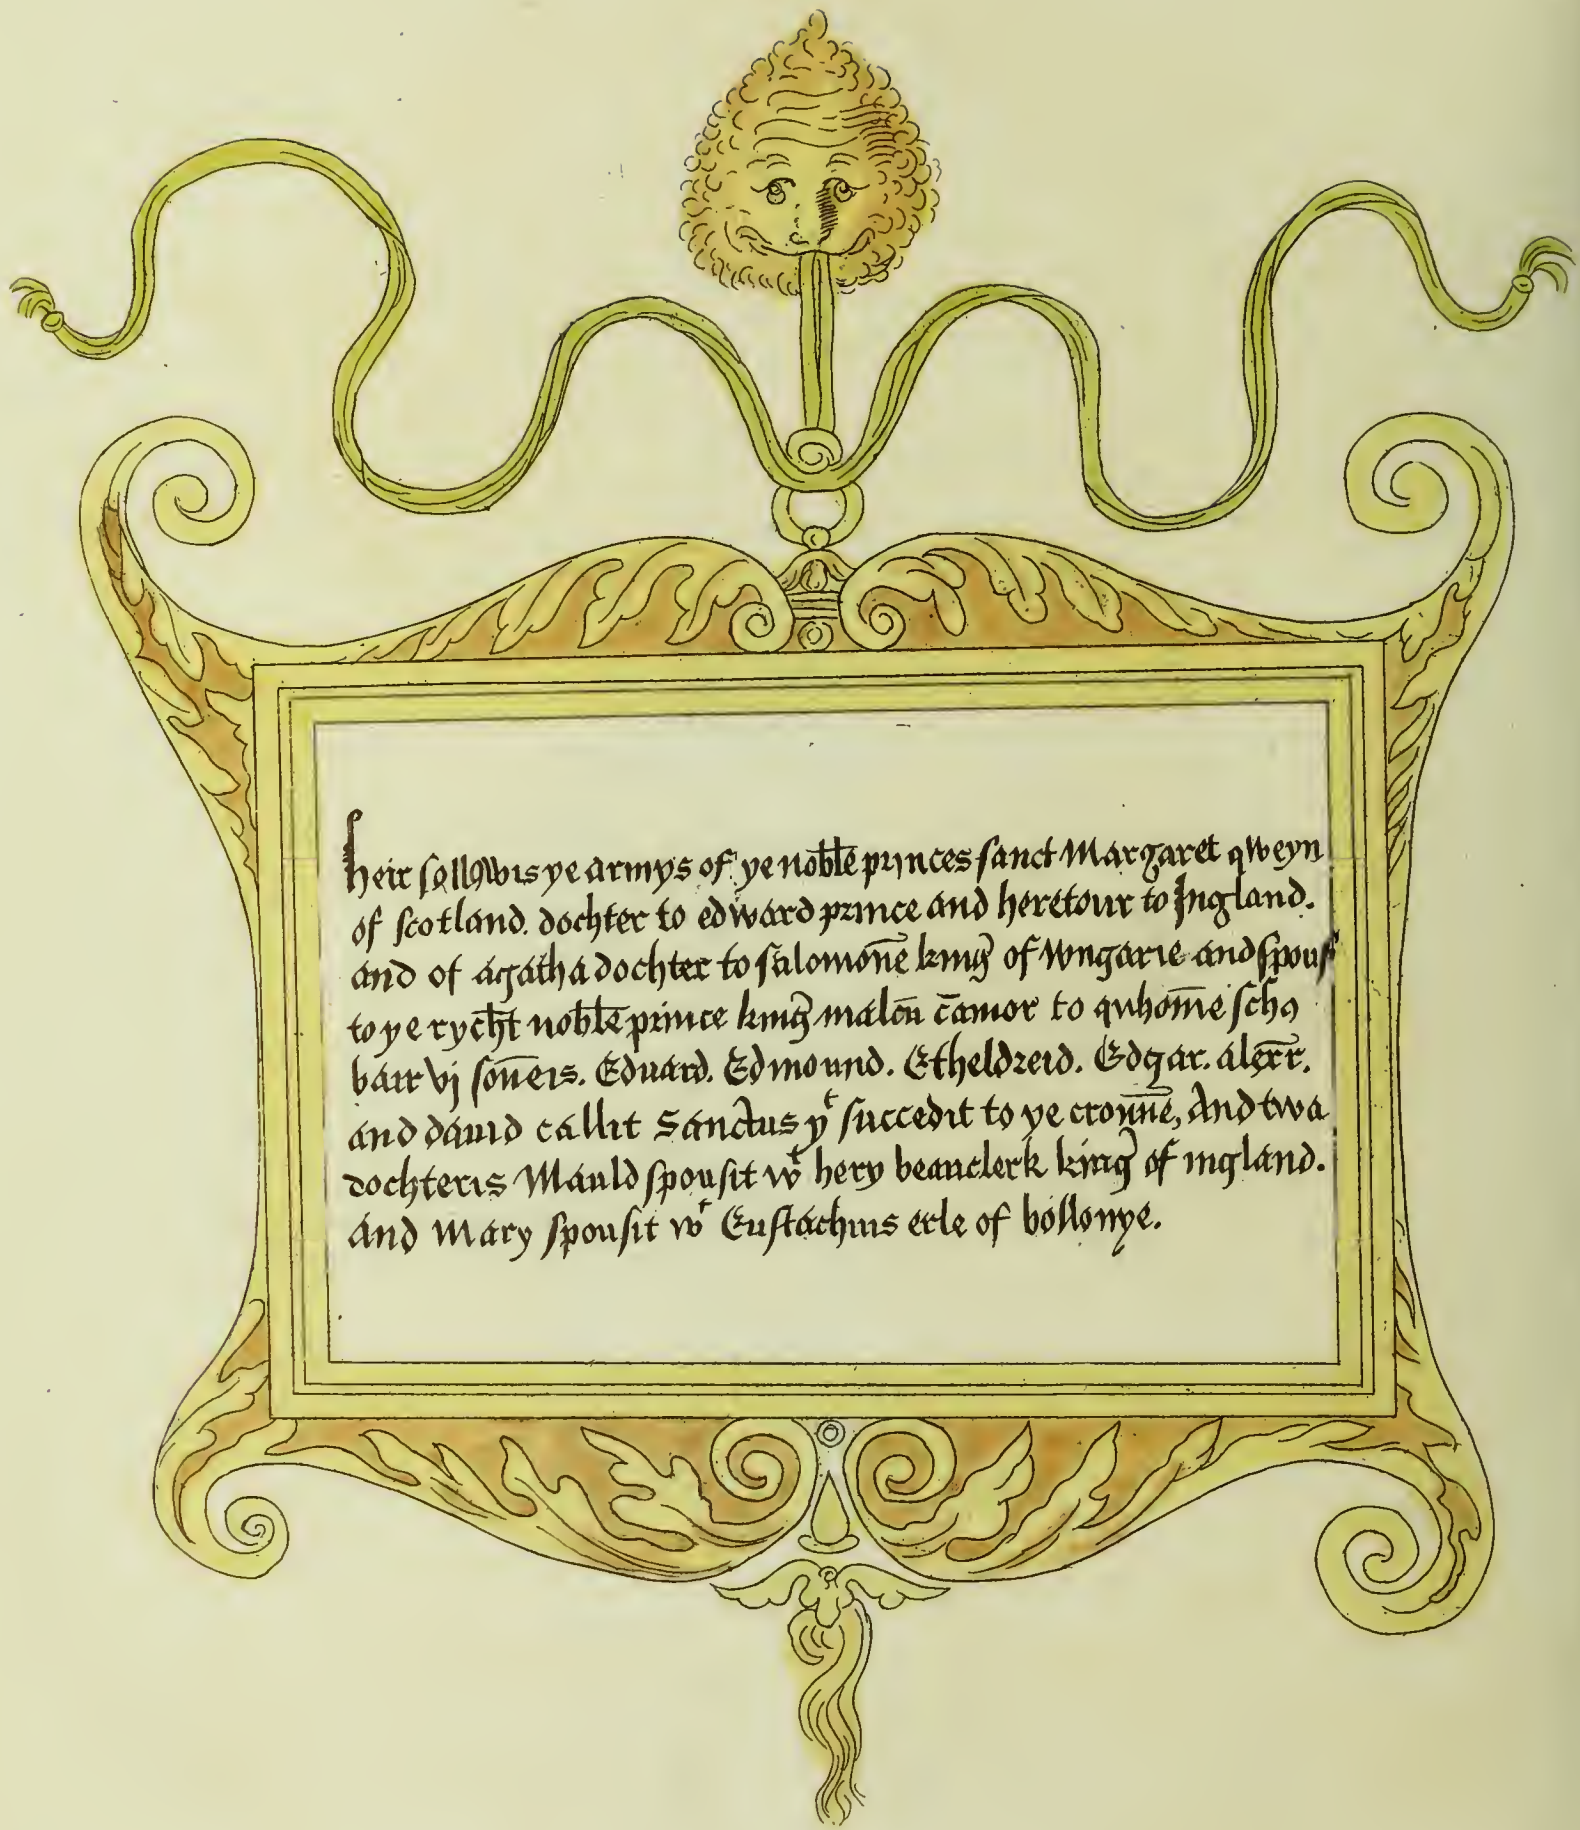 Heir followis ye armys of ye noble̅ prınces sanct Margaret qweyn
of scotland. dochter to edward prince and heretour to Ingland.
and of agatha dochter to salomon̅e king̅ of wngarie and spous
to ye rych̅t noble̅ prince king̅ malcū c̅amor to quhom̅e scho
bair vj son̅eis. Eduard. Edmound. Etheldreid. Edgar. alex̅r̅.
and dauid callit Sanctus yͭ succedit to ye croun̅e, And twa
dochteris Mauld spousit wͭ hery beauclerk king̅ of ingland.
And Mary spousit wͭ Eustachius erle of bollonye.